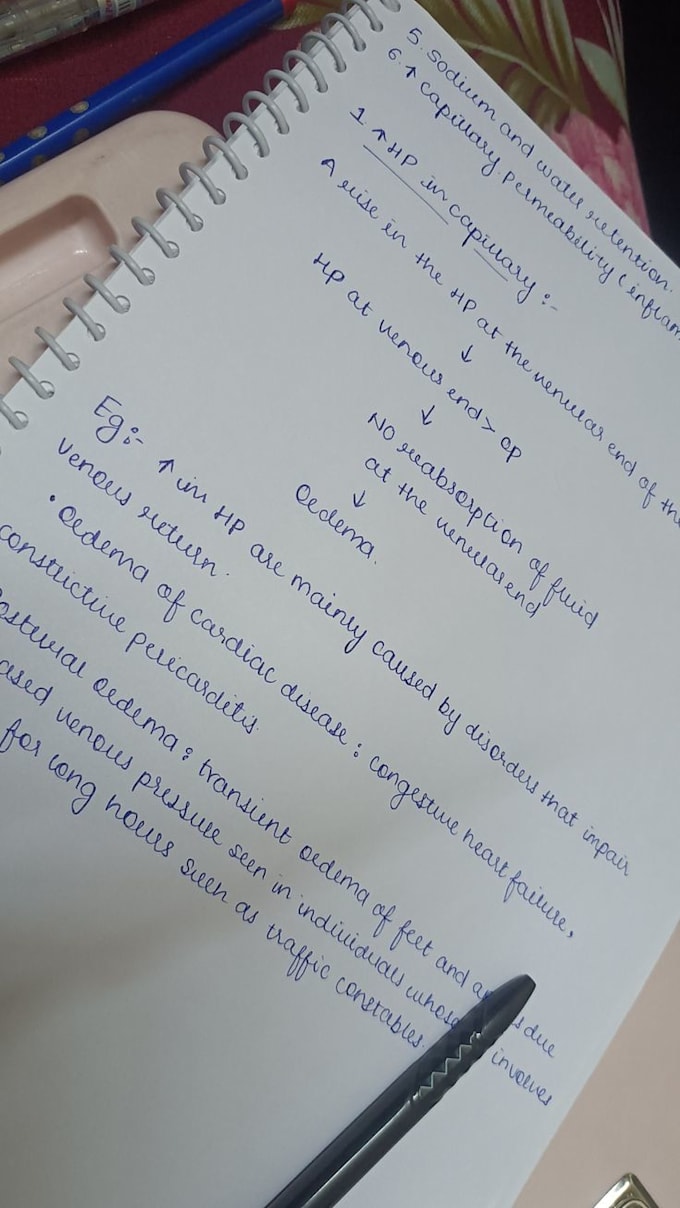 5. Sodium and water retention.
6. ↑ capillary permeability (inflam
1. ↑ HP in capillary :-
A rise in the HP at the venular end of the
↓
HP at venous end > op
↓
NO reabsorption of fluid
at the venular end
↓
Oedema.
Eg:- ↑ in HP are mainly caused by disorders that impair
venous return.
• Oedema of cardiac disease : congestive heart failure,
constrictive pericarditis.
ostural oedema : transient oedema of feet and due
ased venous pressure seen in individuals whose involves
for long hours such as traffic constables.